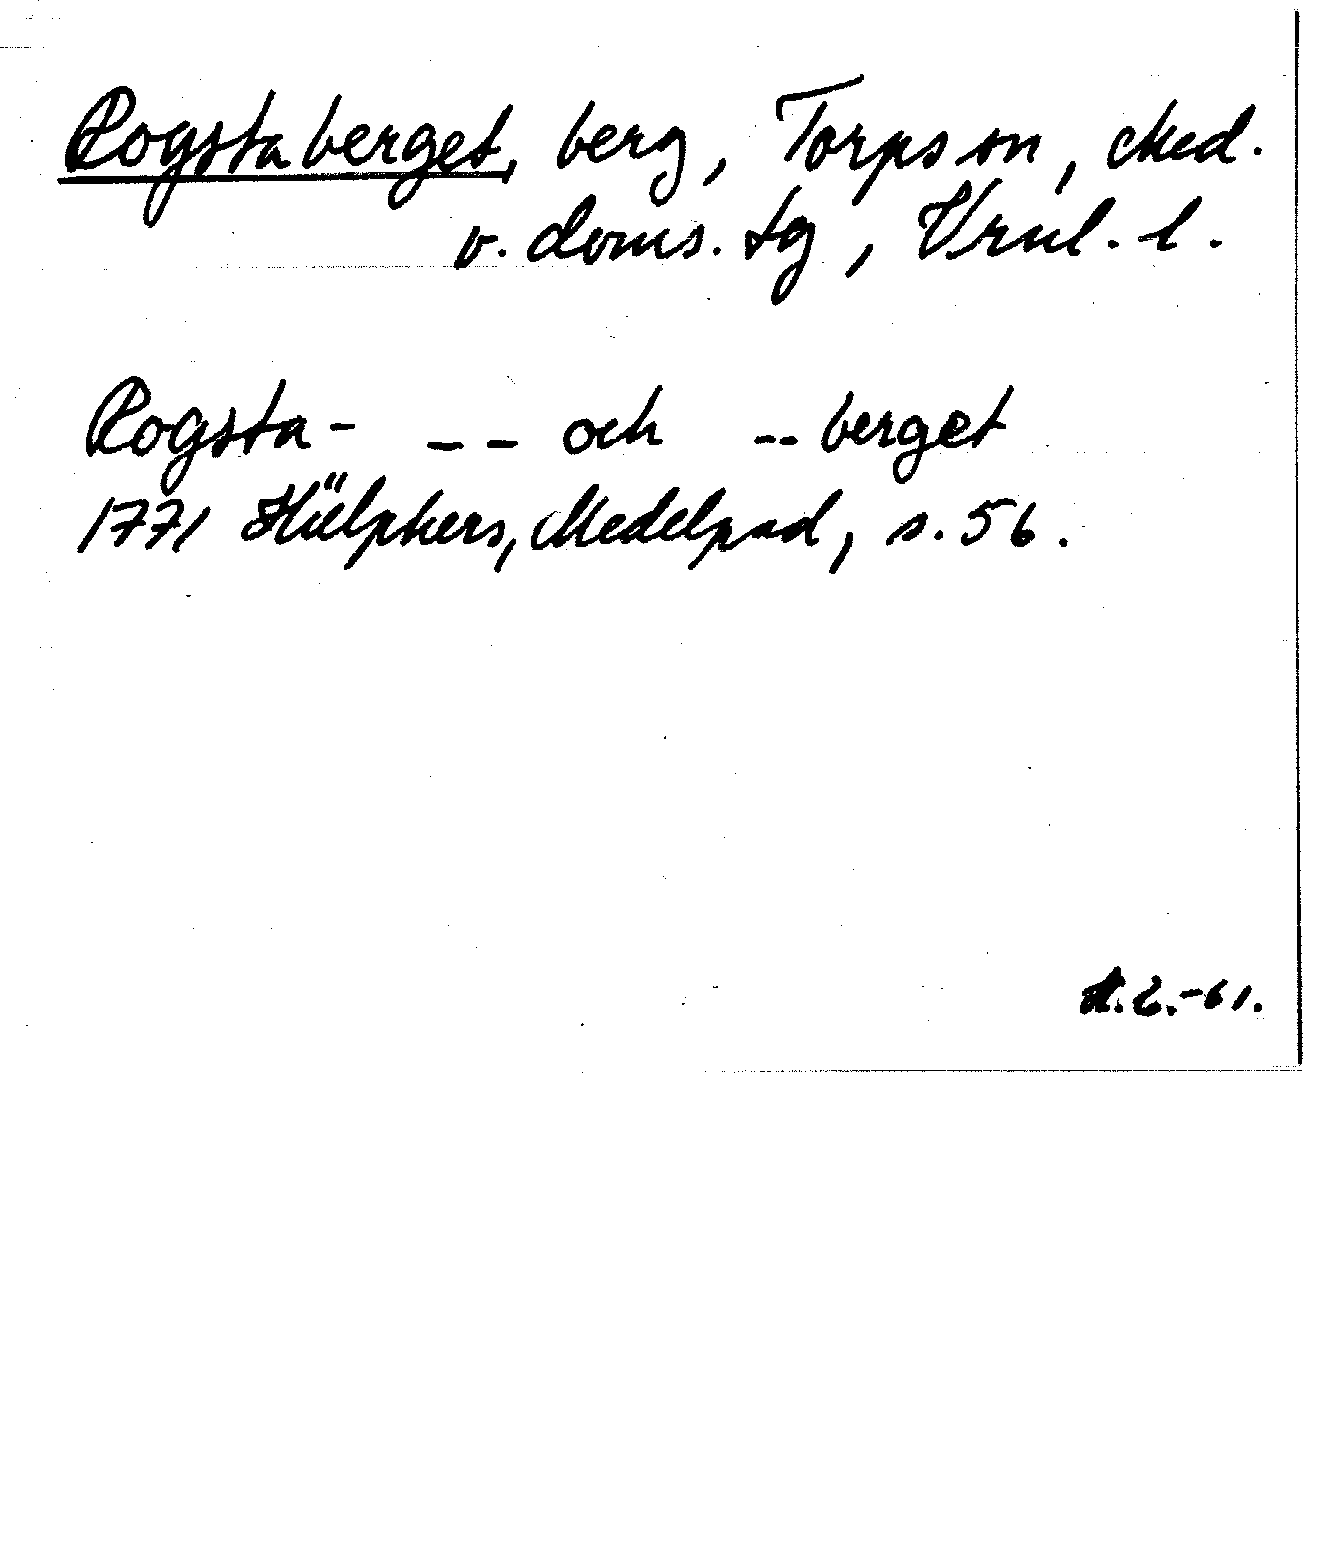 Rogstaberget, berg, Torps sn, Med.
v. doms. tg, Vrnl. l.
Rogsta- -- och -- berget
1771 Hülphers, Medelpad, s. 56.
-61.